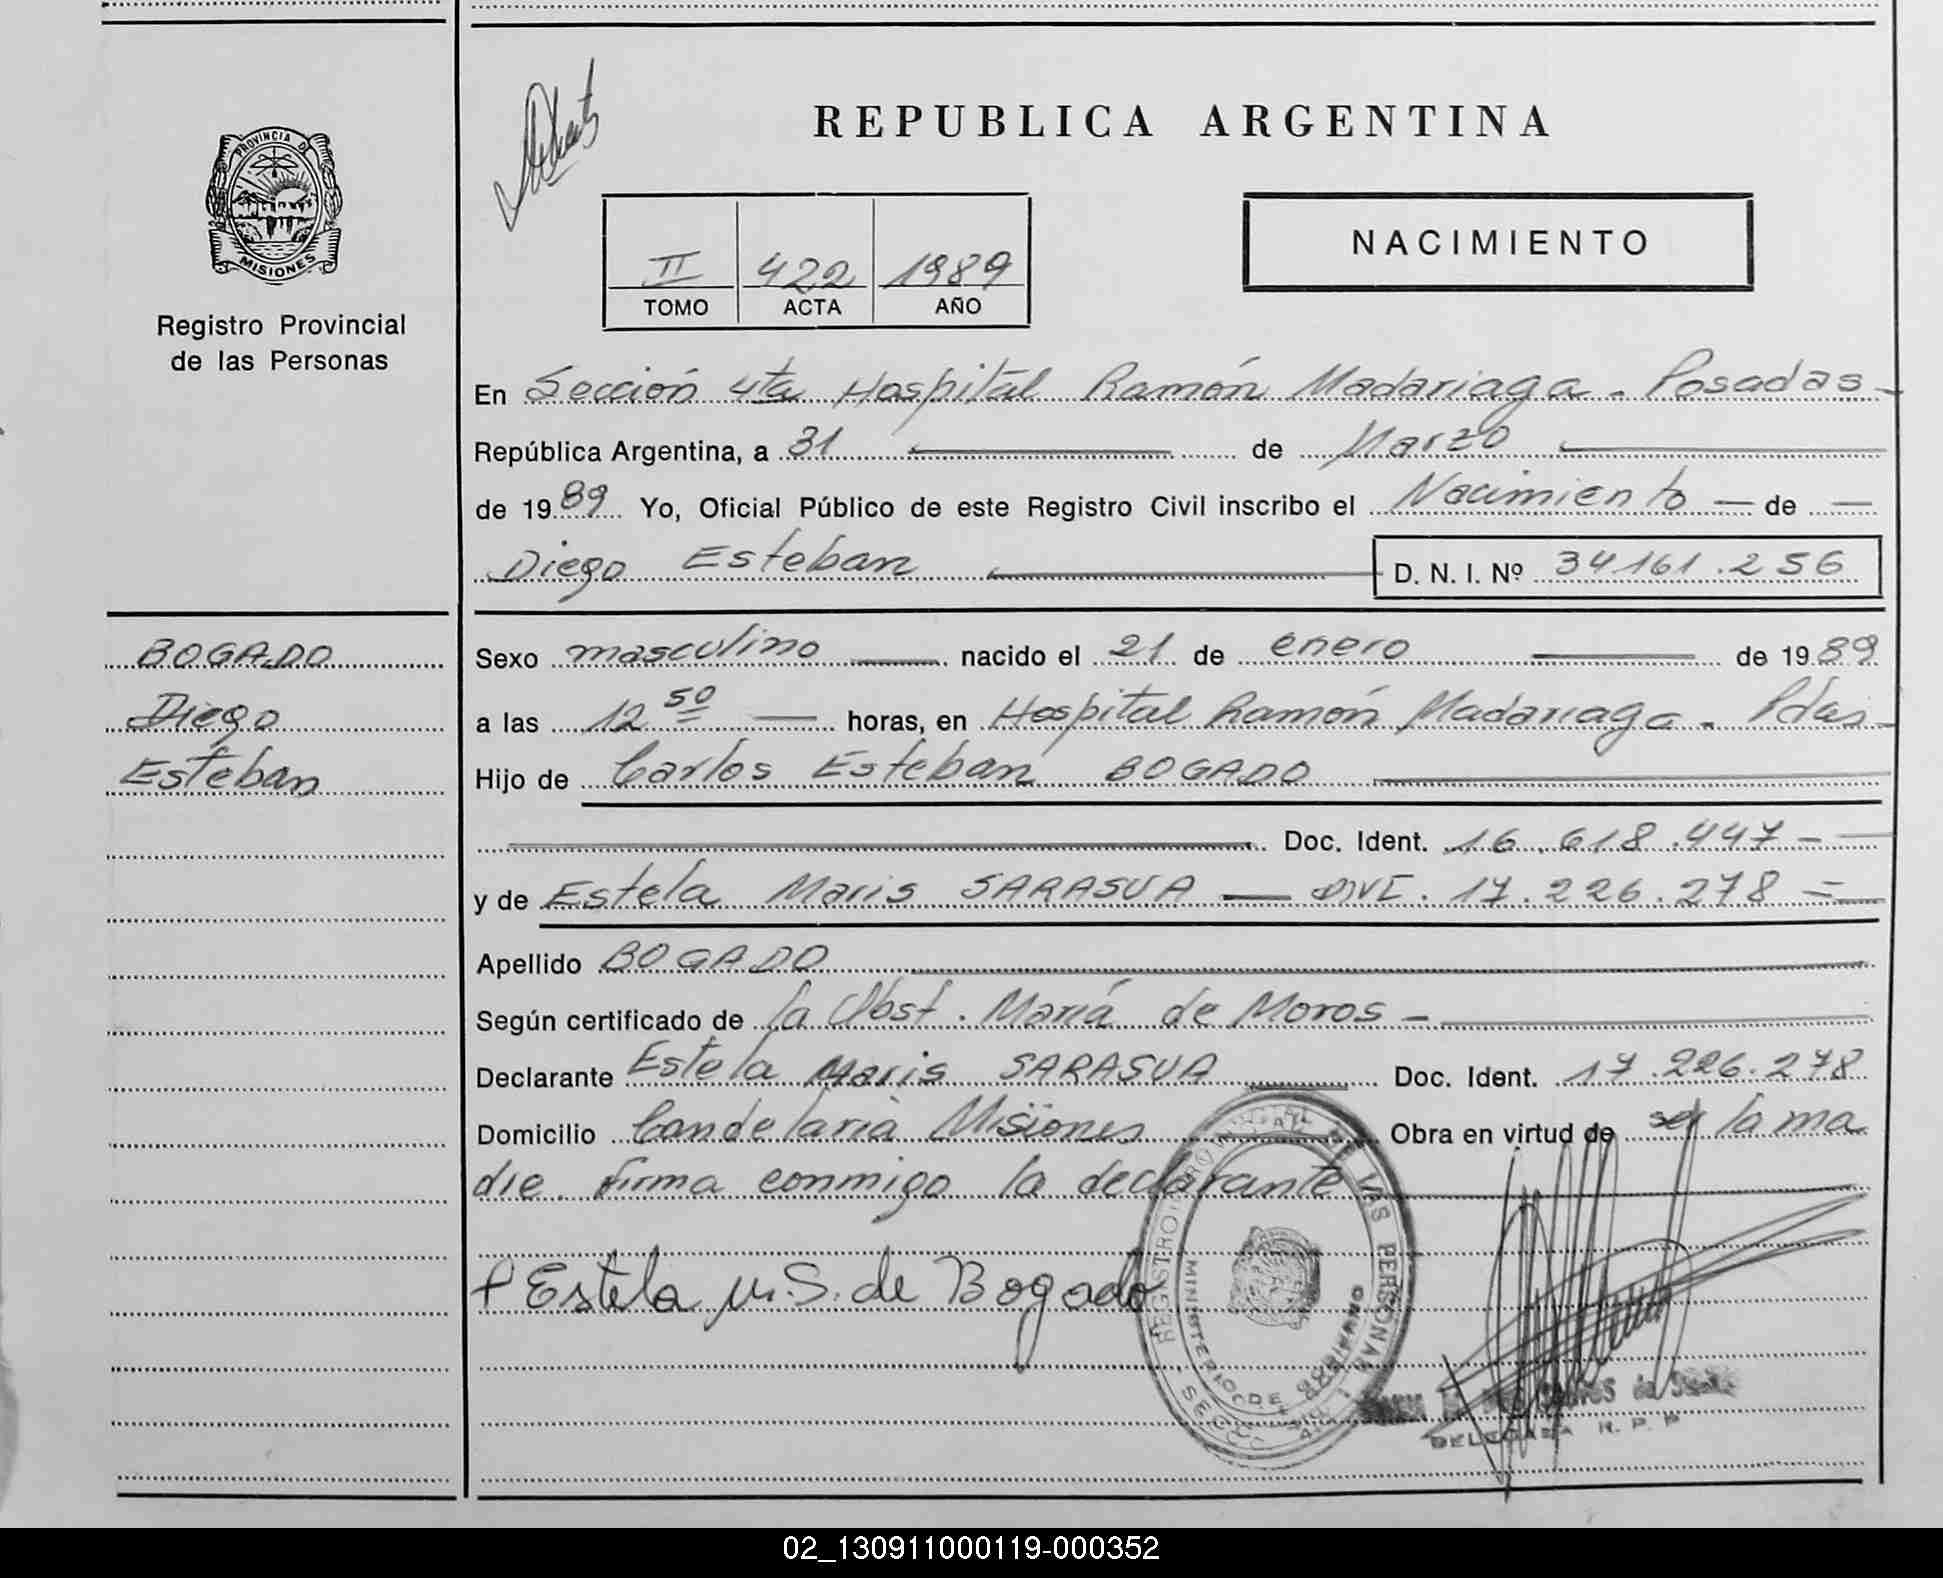 PROVINCIA DE
MISIONES
Registro Provincial
de las Personas
REPUBLICA ARGENTINA
NACIMIENTO
II 422 1989
TOMO ACTA AÑO
En Sección 4ta Hospital Ramón Madariaga - Posadas -
República Argentina, a 31 de Marzo
de 1989 Yo, Oficial Público de este Registro Civil inscribo el Nacimiento — de —
Diego Esteban D. N. I. Nº 34161.256
BOGADO
Diego
Esteban
Sexo masculino nacido el 21 de enero de 1989
a las 12 50 horas, en Hospital Ramón Madariaga - Pdas -
Hijo de Carlos Esteban BOGADO
Doc. Ident. 16.618.447 -
y de Estela Maris SARASUA — DNI. 17.226.278 =
Apellido BOGADO
Según certificado de la Obst. María de Moros -
Declarante Estela Maris SARASUA Doc. Ident. 17.226.278
Domicilio Candelaria Misiones Obra en virtud de ser la ma
dre. firma conmigo la declarante
Estela M. S. de Bogado
REGISTRO PROVINCIAL DE LAS PERSONAS
MINISTERIO DE GOBIERNO
DELEGADA R. P. P.
02_130911000119-000352